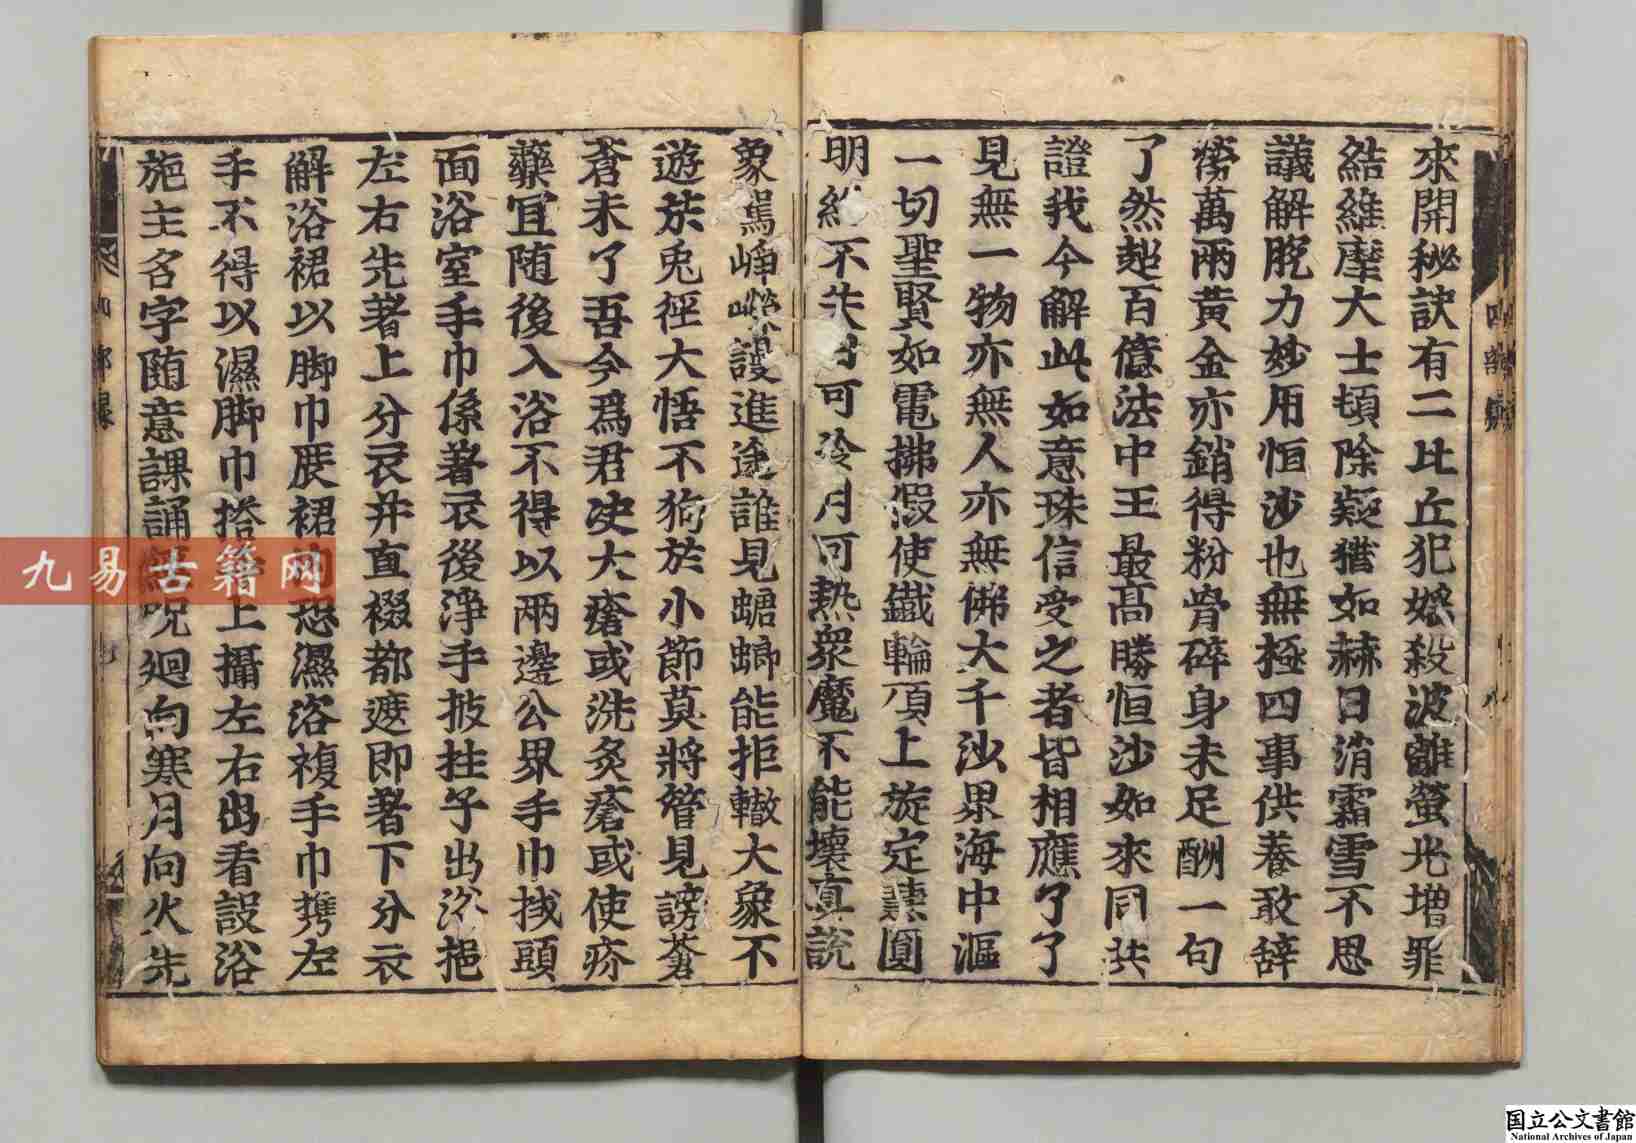 來開秘訣有二比丘犯婬殺波離螢光增罪
結維摩大士頓除疑猶如赫日消霜雪不思
議解脫力妙用恒沙也無極四事供養敢辞
勞萬兩黃金亦銷得粉骨碎身未足酬一句
了然超百億法中王最高勝恒沙如來同共
證我今解此如意珠信受之者皆相應了了
見無一物亦無人亦無佛大千沙界海中漚
一切聖賢如電拂假使鐵輪頂上旋定慧圓
明終不失日可冷月可熱衆魔不能壞真說
象駕崢嶸謾進途誰見螗蜋能拒轍大象不
遊於兎徑大悟不狗於小節莫將管見謗蒼
蒼未了吾今爲君决大瘡或洗灸瘡或使疥
藥宜随後入浴不得以兩邊公界手巾拭頭
面浴室手巾係著衣後淨手披挂子出浴挹
左右先著上分衣并直裰都遮即著下分衣
解浴裙以脚巾展裙恐濕浴複手巾携左
手不得以濕脚巾搭上攝左右出看設浴
施主名字随意課誦經呪廻向寒月向火先
四部録
九易古籍网
国立公文書館
National Archives of Japan